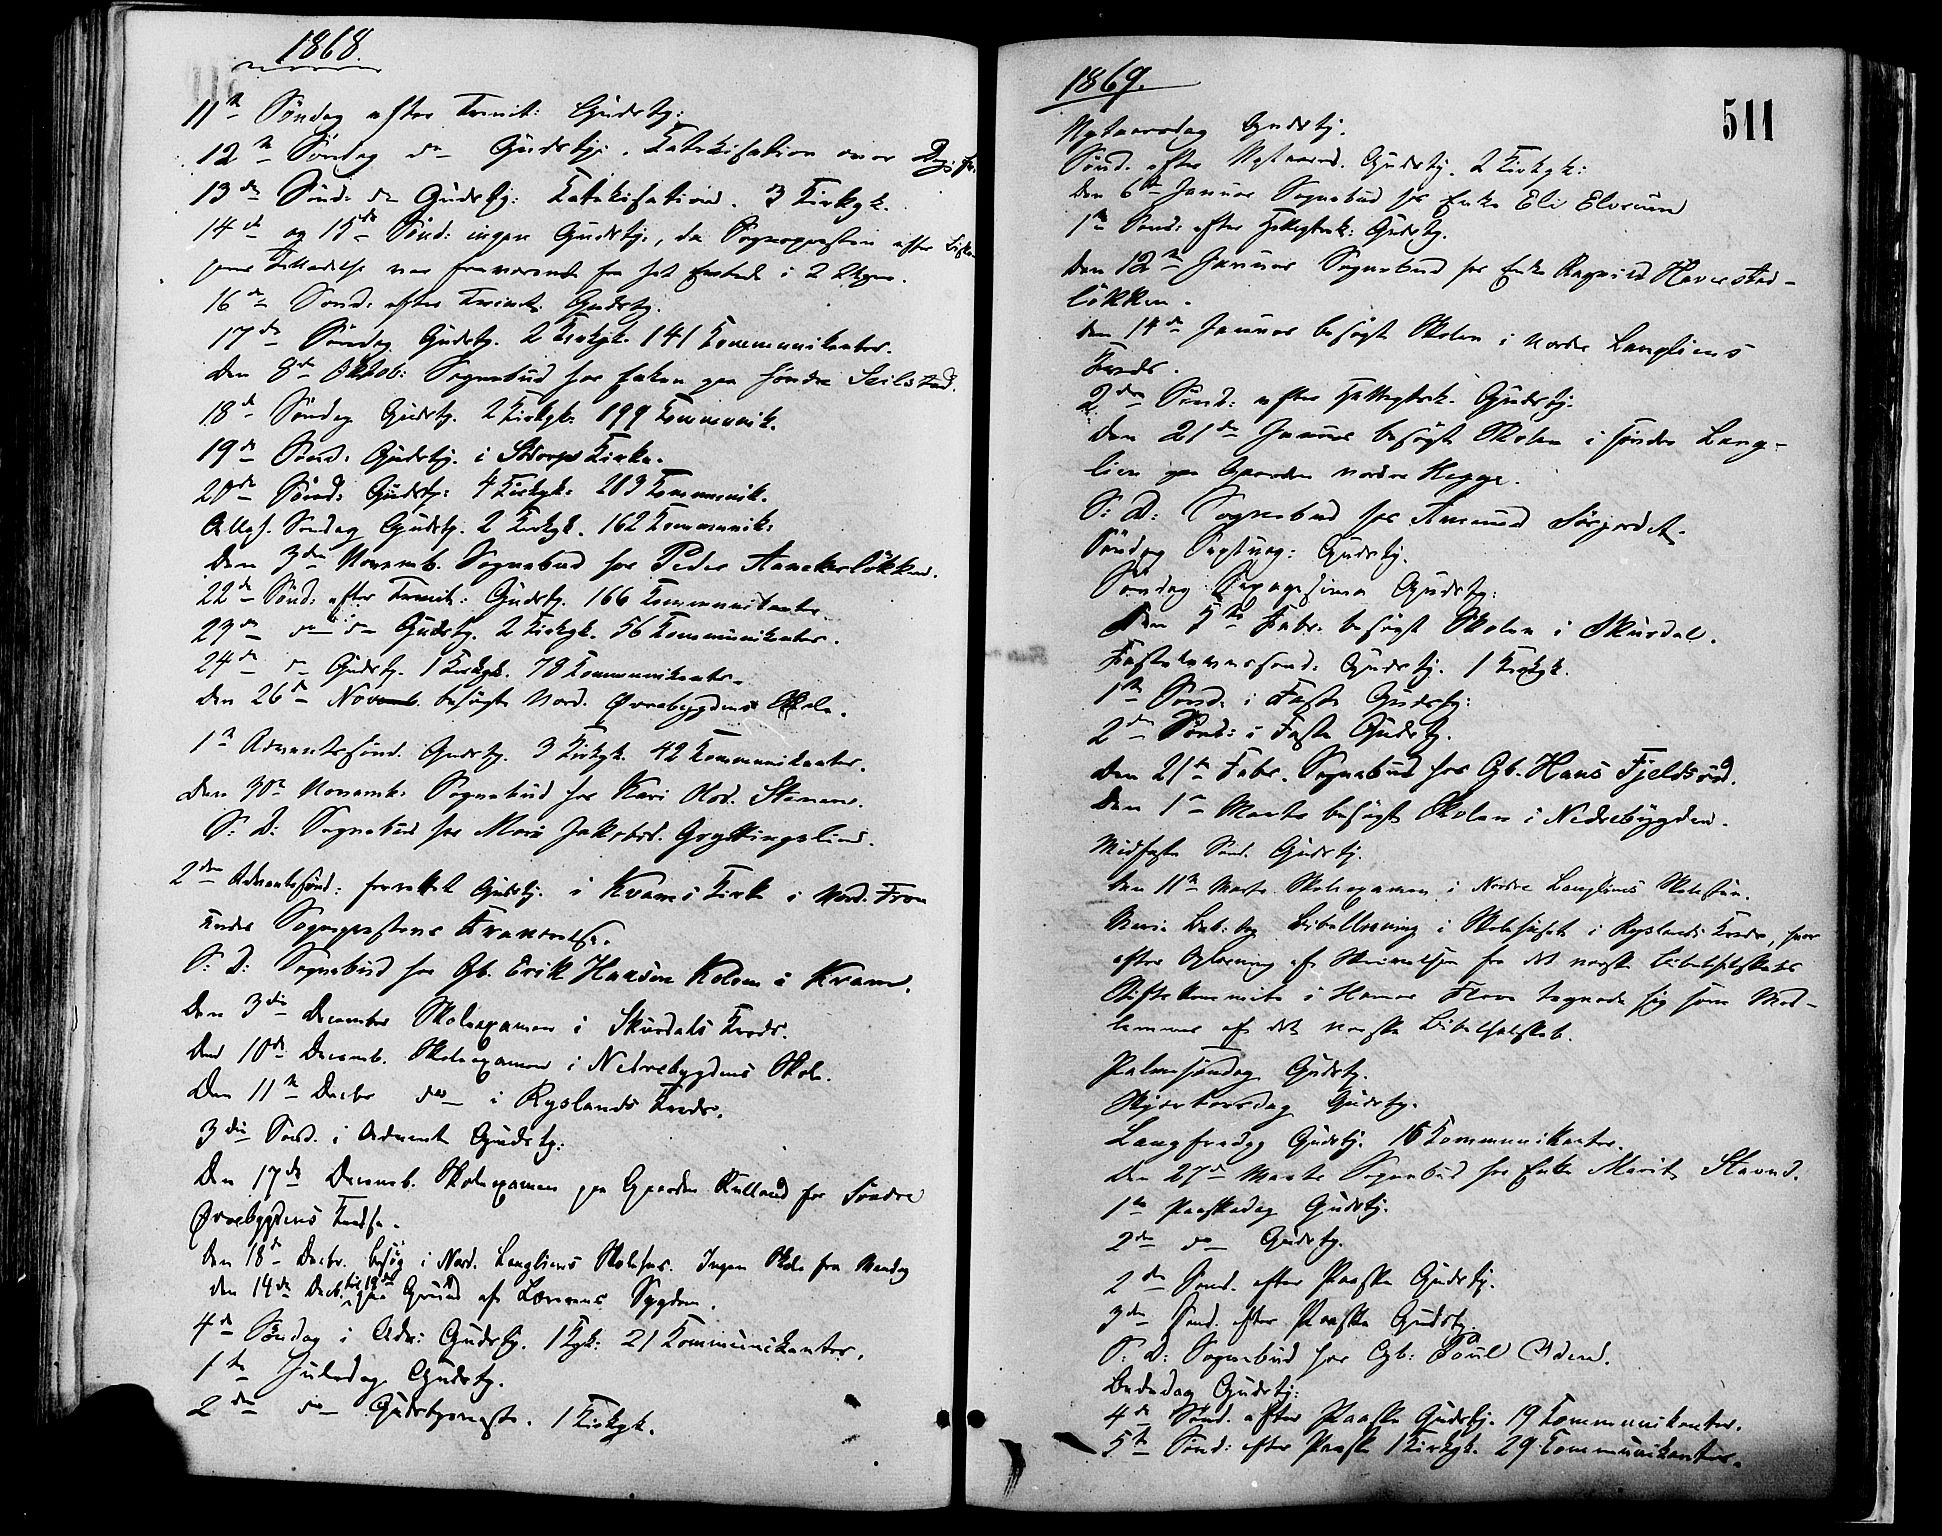 1868.
11te Søndag efter Trinit: Gudstj:
12te Søndag do Gudstj: Katekisation over
13de Sønd: do Gudstj: Katekisation. 3 Kirkgk.
14de og 15de Sønd: ingen Gudstj:, da Sognepresten efter
Tilladelse var fraværende fra sit Embede i 2 Uger.
16de Sønd: efter Trinit. Gudstj.
17de Søndag Gudstj. 2 Kirkgk. 141 Kommunikanter.
Den 8de Oktob: Sognebud hos Enken paa søndre Seilstad.
18de Søndag Gudstj. 2 Kirkgk: 199 Kommunik.
19de Sønd: Gudstj. i Sødorps Kirke.
20de Sønd: Gudstj: 4 Kirkgk: 203 Kommunik.
Alleh. Søndag Gudstj. 2 Kirkgk. 162 Kommunik:
Den 3die Novemb. Sognebud hos Peder Aanekerløkken.
22de Sønd: efter Trinit: Gudstj. 166 Kommunikanter
23de do do Gudstj. 2 Kirkgk. 56 Kommunikanter.
24de do Gudstj. 1 Kirkgk. 78 Kommunikanter.
Den 26de Novemb. besøgt Nord. Øvrebygdens Skole.
1te Adventssønd. Gudstj. 3 Kirkgk. 42 Kommunikanter.
Den 30te Novemb: Sognebud hos Kari Olsd. Stenen.
S: D: Sognebud hos Mari Jakobsd. Gryttingslien.
2den Adventssønd: forrettet Gudstj. i Kvams Kirke i Nord. Fron
under Sognepræstens Fraværelse.
S: D: Sognebud hos Gb. Erik Hansen Kolom i Kvam.
Den 3die December Skoleexamen i Skurdals Kreds.
Den 10de Decemb. Skoleexamen i Nedrebygdens Skole.
Den 11te Decbr do i Ryslands Kreds.
3die Sønd. i Advent Gudstj:
Den 17de Decemb. Skoleexamen paa Gaarden Rulland for Søndre
Øvrebygdens Kreds.
Den 18de Decbr. besøg i Nord. Langliens Skolehus. Ingen Skole fra Mandag
den 14de Decb. til 19de paa Grund af Lærerens Sygdom.
4de Søndag i Adv: Gudstj. 1 Kgk: 21 Kommunikanter.
1te Juledag Gudstj.
2den do Gudstjeneste. 1 Kirkgk.
1869.
511
Nytaarsdag Gudstj.
Sønd. efter Nytaarsd. Gudstj. 2 Kirkgk:
Den 6te Januar Sognebud hos Enke Eli Elveum
1te Sønd: efter Helligtrek: Gudstj.
Den 12te Januar Sognebud hos Enke Ragnild Haverstad-
løkken.
Den 14de Januar besøgt Skolen i Nordre Langliens
Kreds.
2den Sønd: efter Helligtrek. Gudstj.
Den 21de Januar besøgt Skolen i søndre Lang-
lien paa Gaarden nordre Hegge.
S: D: Sognebud hos Amund Sørgardet.
Søndag Septuag: Gudstj.
Søndag Sexagesima Gudstj:
Den 5te Febr. besøgt Skolen i Skurdal.
Fastelavnssønd: Gudstj. 1 Kirkgk.
1te Sønd. i Faste Gudstj:
2den Sønd: i Faste Gudstj.
Den 21de Febr. Sognebud hos Gb. Hans Fjeldsød.
Den 1te Marts besøgt Skolen i Nedrebygden.
Midfaste Sønd. Gudstj.
Den 11te Marts Skoleexamen i Nordre Langliens Skolehus.
Marie Bebud. Dag Bibellæsning i Skolehuset i Ryslands Kreds, hvor
efter Oplæsning af Skrivelsen fra det norske Bibelselskabs
Stiftskommite i Hamar Flere tegnede sig som Med-
lemmer af det norske Bibelselskab.
Palmesøndag Gudstj.
Skjærtorsdag Gudstj.
Langfredag Gudstj. 16 Kommunikanter.
Den 27de Marts Sognebud hos Enke Marit Stavnd.
1te Paaskedag Gudstj.
2den do Gudstj.
2den Sønd. efter Paaske Gudstj.
3die Sønd. efter Paaske Gudstj.
S: D: Sognebud hos Gb: Poul
Bededag Gudstj:
4de Sønd. efter Paaske Gudstj. 19 Kommunikanter.
5te Sønd: efter Paaske 1 Kirkgk. 29 Kommunikanter.